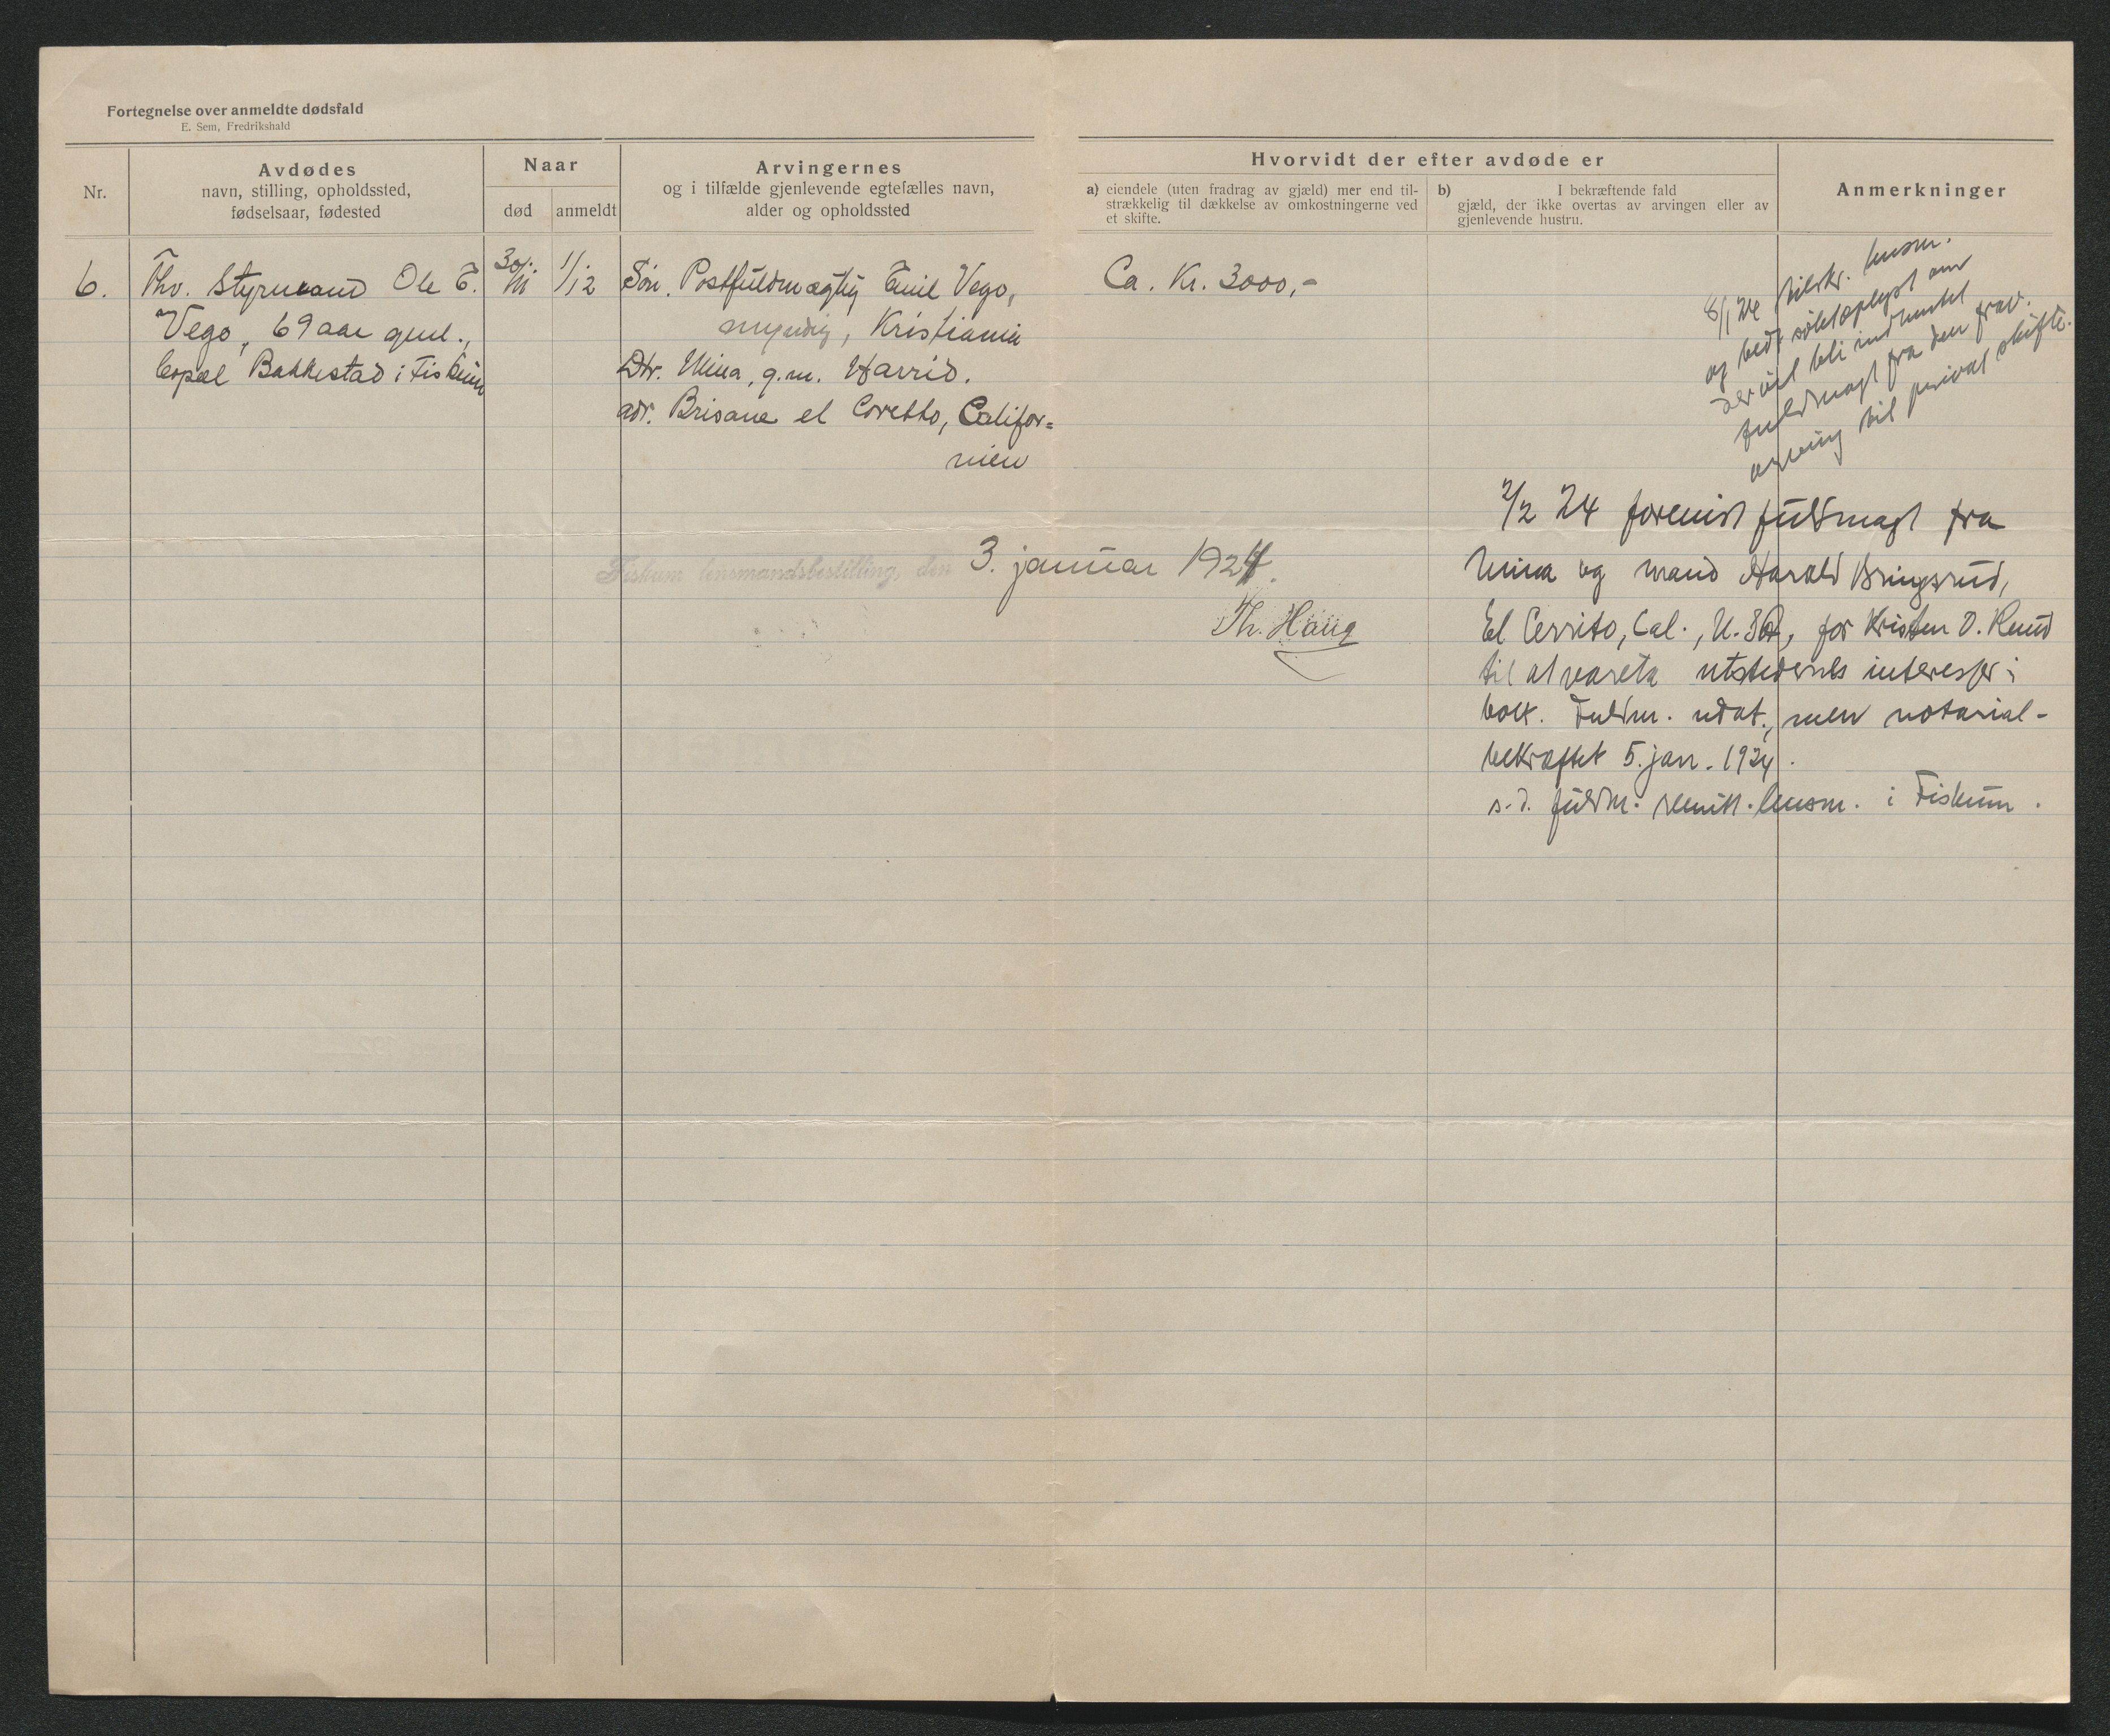 Fortegnelse over anmeldte dødsfald
E. Sem, Fredrikshald
Nr.
Avdødes
navn, stilling, opholdssted,
fødselsaar, fødested
Naar
død
anmeldt
Arvingernes
og i tilfælde gjenlevende egtefælles navn,
alder og opholdssted
Hvorvidt der efter avdøde er
a) eiendele (uten fradrag av gjæld) mer end til-
strækkelig til dækkelse av omkostningerne ved
et skifte.
b) I bekræftende fald
gjæld, der ikke overtas av arvingen eller av
gjenlevende hustru.
Anmerkninger
6.
Fhv. Styrmand Ole E.
Vego, 69 aar gml.,
bopæl Bakkestad i Fiskum
30/11
1/12
Søn. Postfuldmægtig Emil Vego,
myndig, Kristiania
Dtr. Mina, g.m. Harrid.
adr. Brisane el Coretto, Califor=
nien
Ca. Kr. 3000,-
8/1 24 tilskr. lensm.
og bedt söktoplyst om
der vil bli indhentet
fuldmagt fra den frav.
arving til privat skifte.
2/2 24 forevist fuldmagt fra
Mina og mand Harald Bringsrud,
El Cerrito, Cal., U.S.A, for Kristen O. Ruud
til at vareta utstedernes interesser i
boet. Fuldm. udat., men notarial-
bekræftet 5. jan. 1924.
s.d. fuldm. remitt. lensm. i Fiskum.
Fiskum lensmandsbestilling, den 3. januar 1924.
Th. Haug